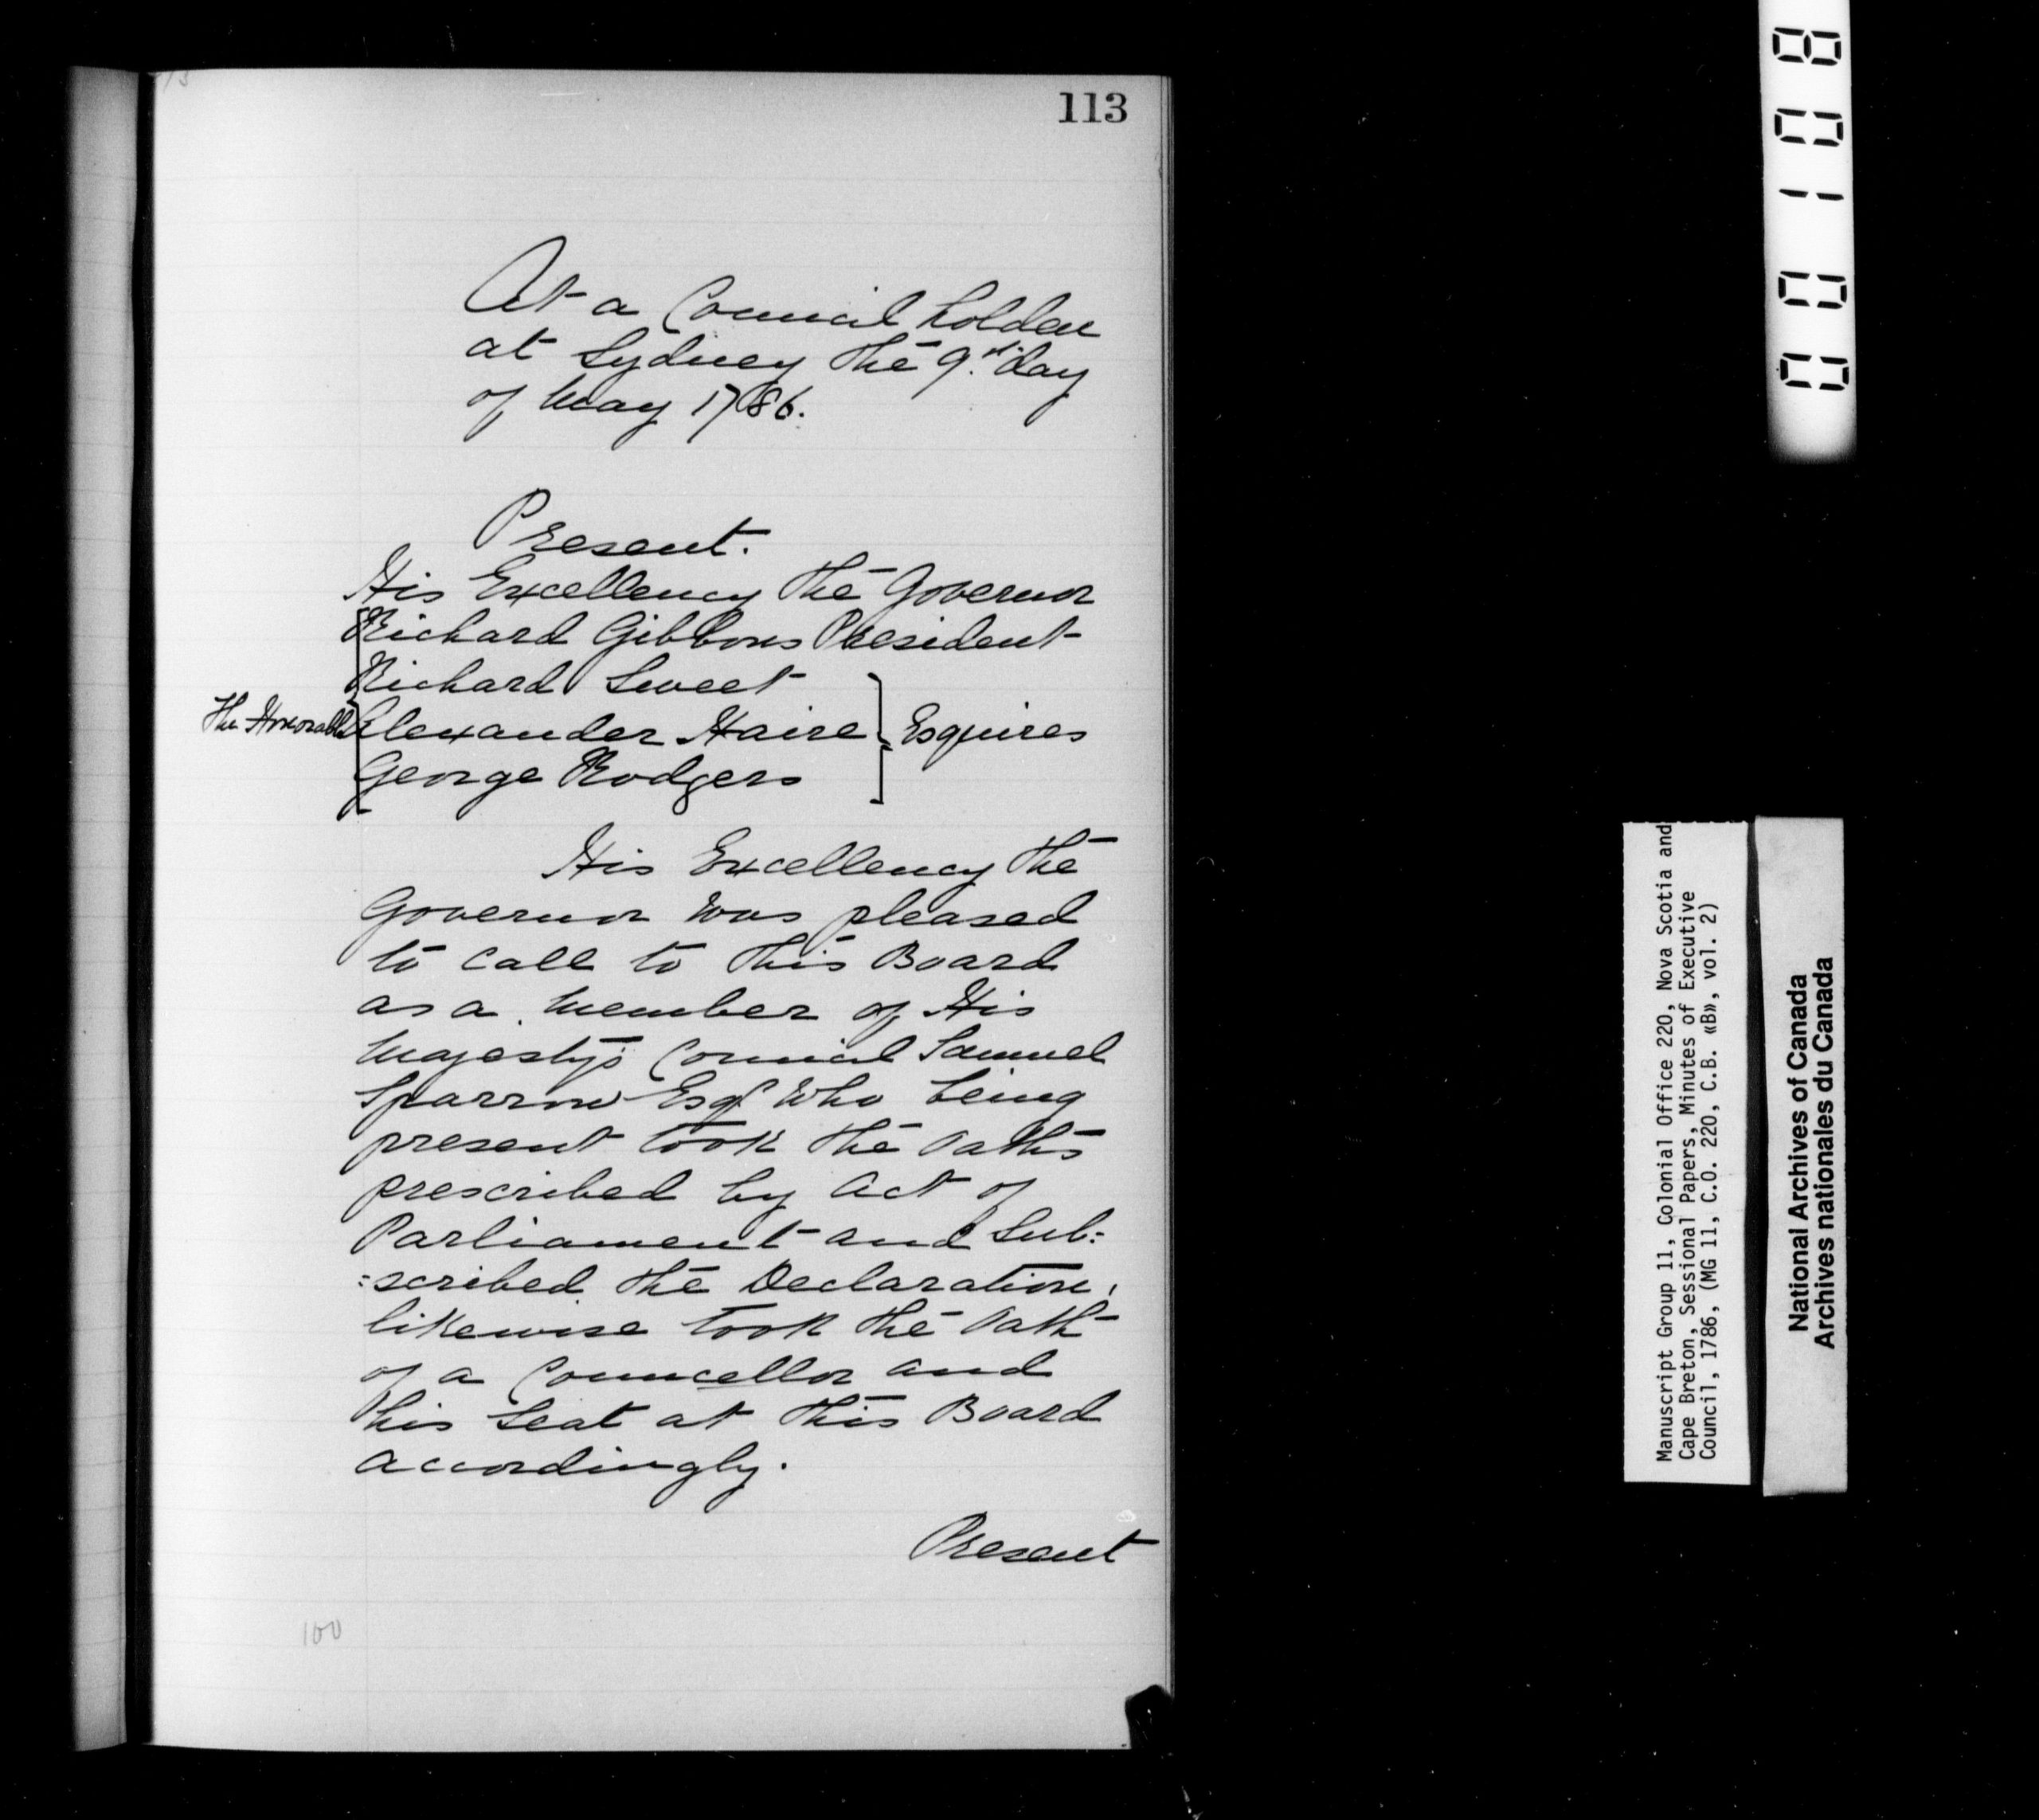 113
At a Council holden
at Sydney the 9th day
of May 1786.
Present.
His Excellency the Governor
Richard Gibbons President
Richard Sweet
The Honorable Alexander Haire Esquires
George Rodgers
His Excellency the
Governor was pleased
to call to this Board
as a member of His
Majesty's Council Samuel
Sparrow Esqr who being
present took the Oaths
prescribed by Act of
Parliament and Sub:
:scribed the Declaration,
likewise took the Oath
of a Councellor and
his Seat at this Board
accordingly.
Present
100
001018
Manuscript Group 11, Colonial Office 220, Nova Scotia and
Cape Breton, Sessional Papers, Minutes of Executive
Council, 1786, (MG 11, C.O. 220, C.B. «B», vol. 2)
National Archives of Canada
Archives nationales du Canada